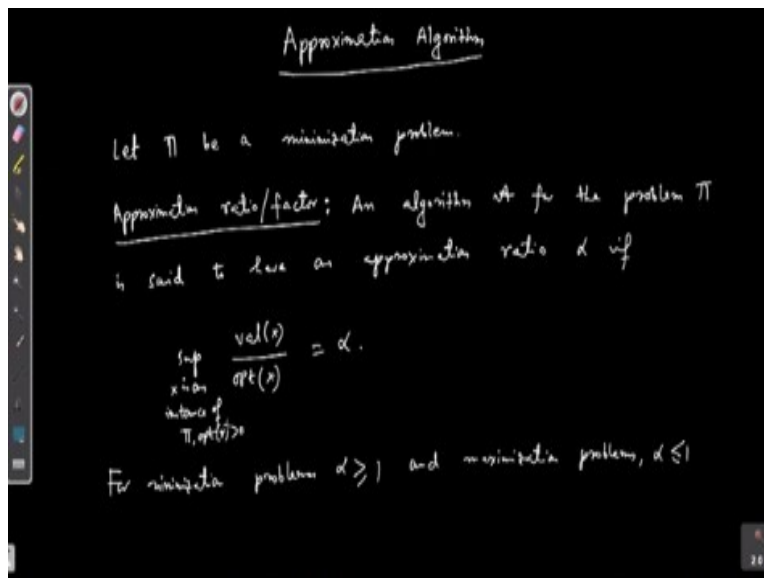 Approximation Algorithm
Let Π be a minimization problem.
Approximation ratio/factor: An algorithm A for the problem Π
is said to have an approximation ratio α if
sup val(x)/opt(x) = α.
x is an
instance of
Π, opt(x)>0
For minimization problems α ≥ 1 and maximization problems, α ≤ 1